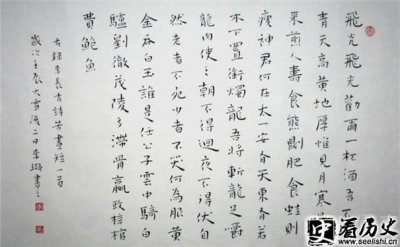 飛光飛光勸爾一杯酒吾不
青天高黄地厚惟見月寒
来煎人壽食熊則肥食蛙則
瘦神君何在太一安有天東有若
木下置銜燭龍吾將斬龍足嚼
龍肉使之朝不得迴夜不得伏自
然老者不死少者不哭何為服黄
金吞白玉誰是任公子雲中騎白
驢劉徹茂陵多滯骨嬴政梓棺
費鮑魚
右録李長吉詩苦晝短一首
歲次壬辰大雪後二日李
看历史
www.seelishi.cn